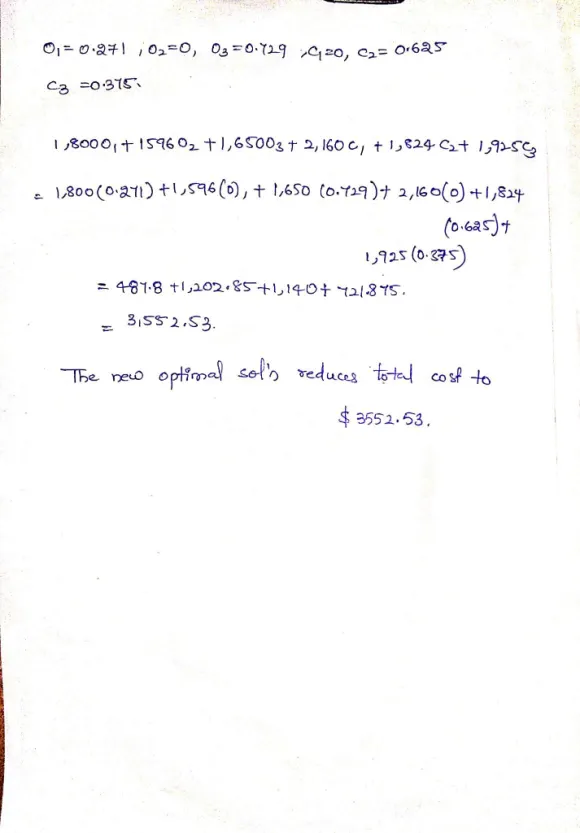 O₁ = 0.271 , O₂=0, O₃ =0.729 , C₁=0, C₂= 0.625
C₃ =0.375.
1,800O₁ + 1596O₂ + 1,650O₃ + 2,160 C₁ + 1,824 C₂ + 1,925C₃
= 1,800 (0.271) + 1,596 (0), + 1,650 (0.729) + 2,160(0) + 1,824
(0.625) +
1,925 (0.375)
= 487.8 + 1,202.85 + 1,140 + 721.875.
= 3,552.53.
The new optimal sol'n reduces total cost to
$ 3552.53.